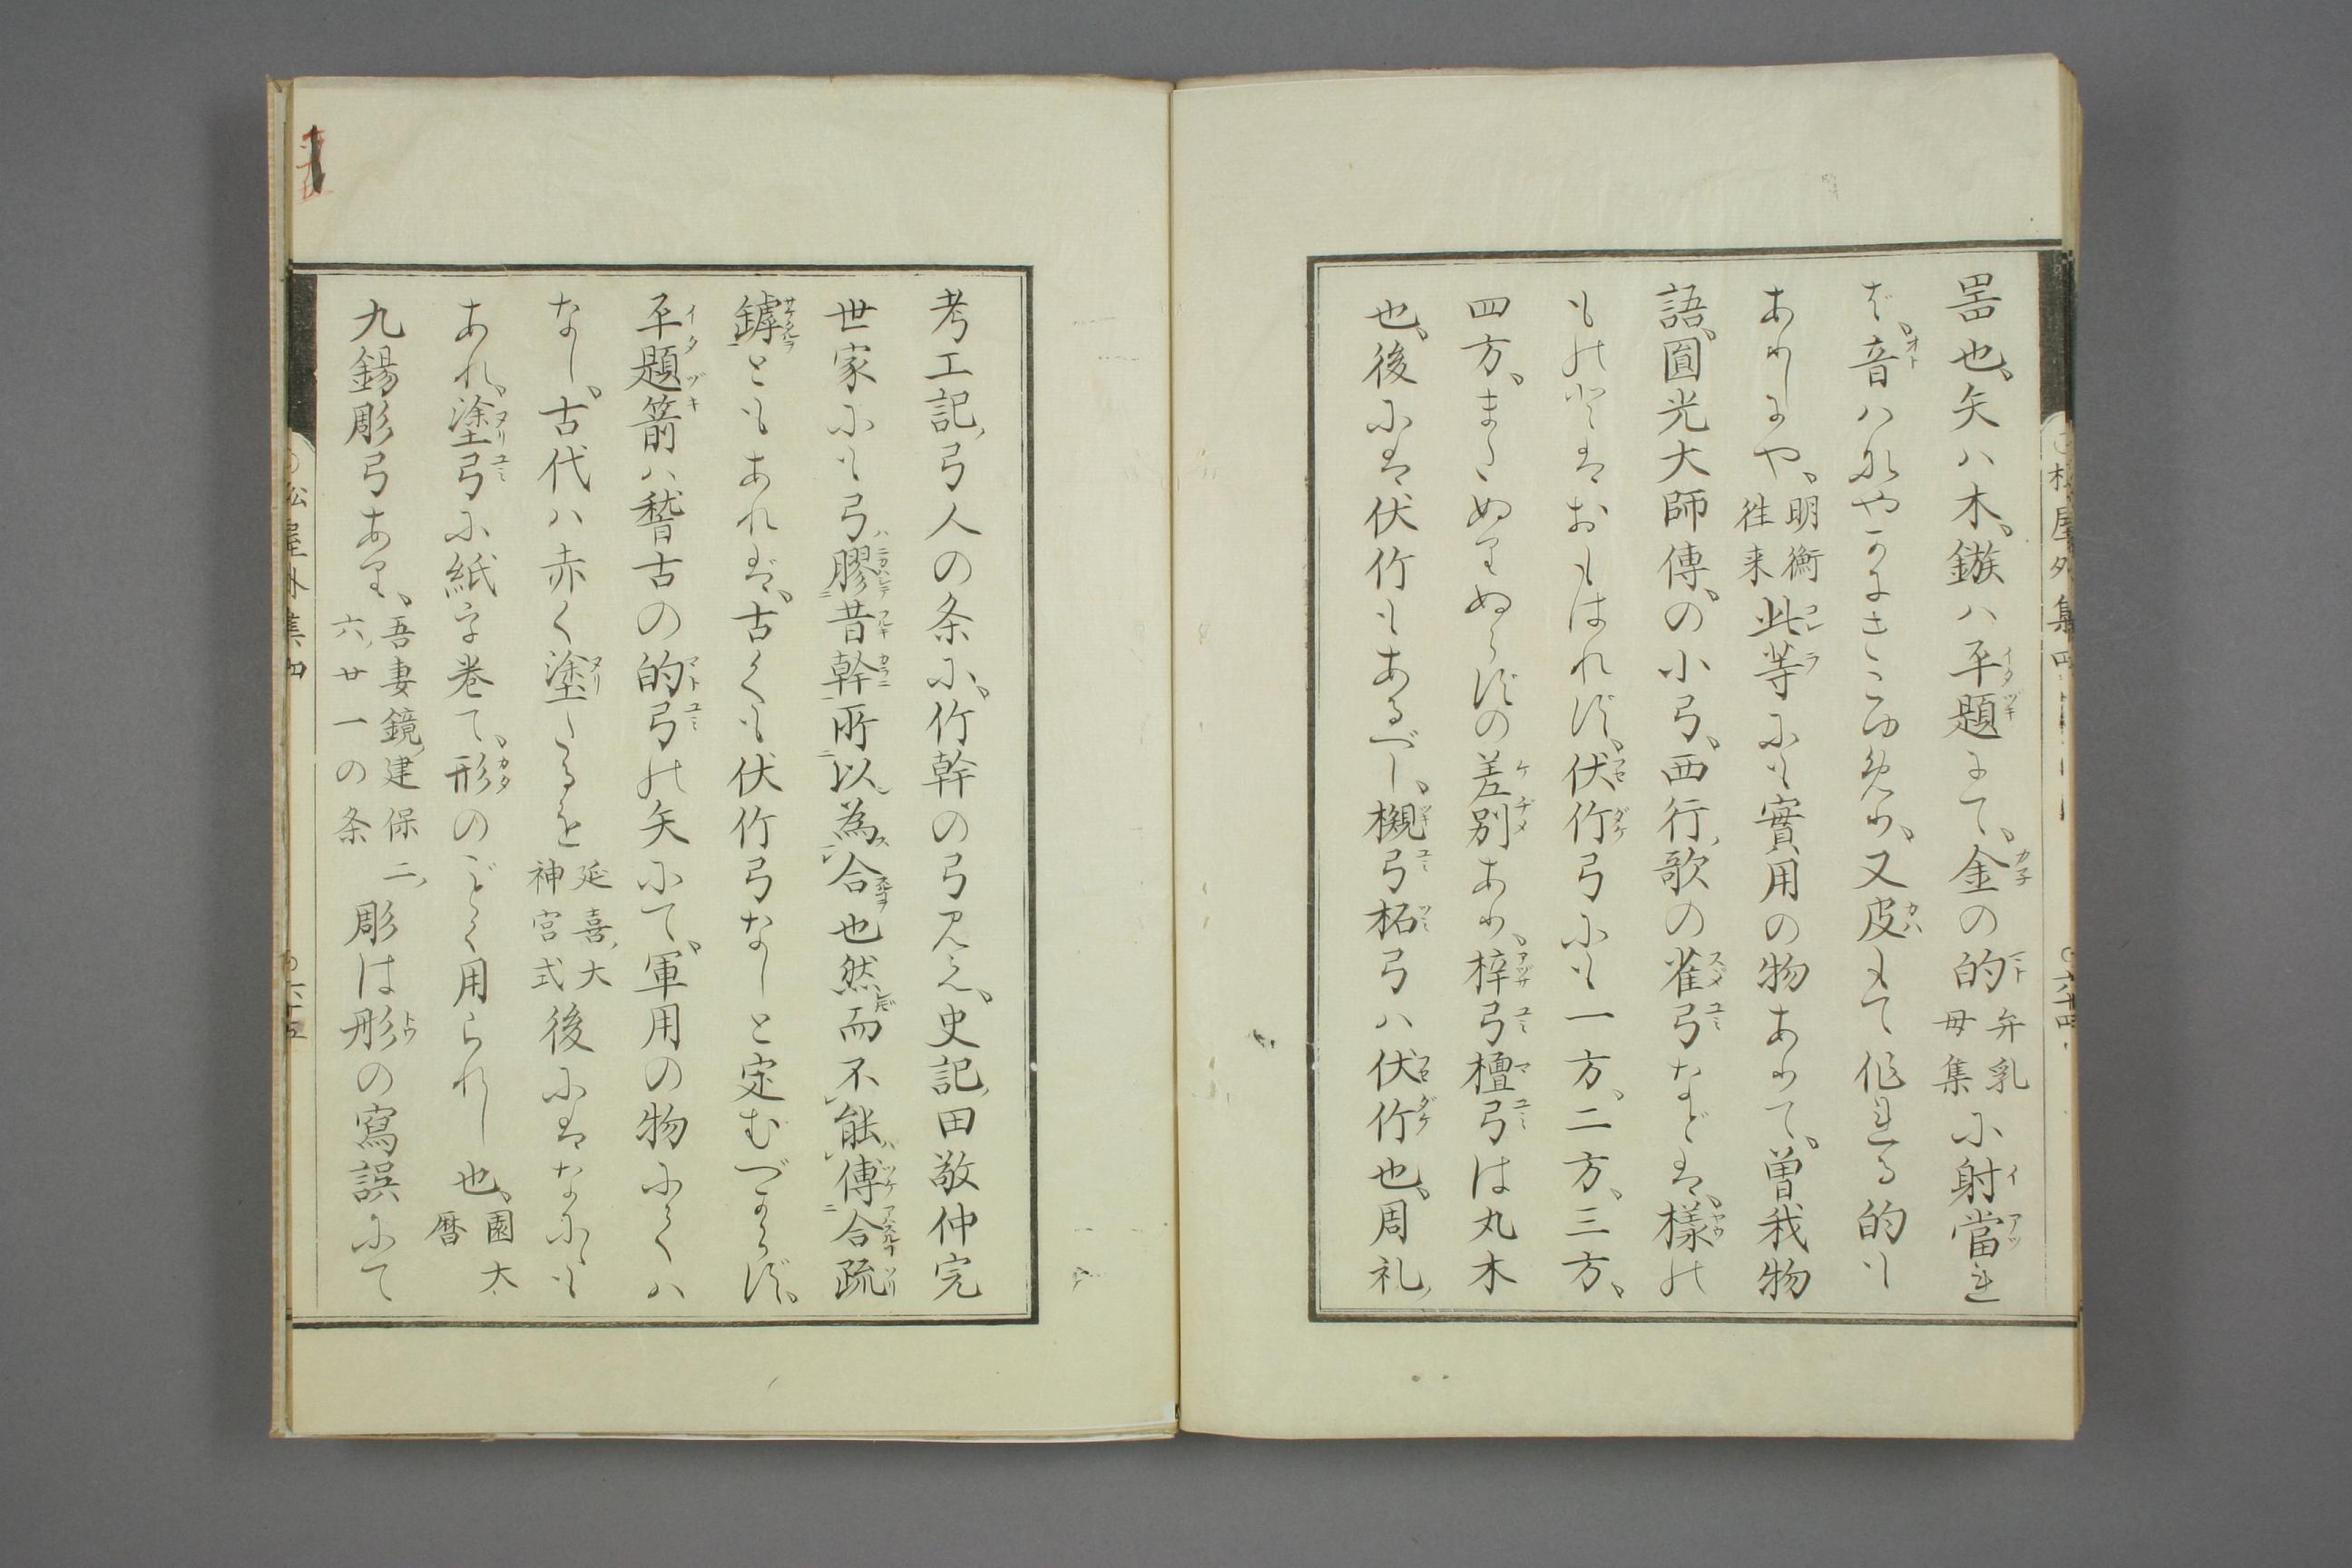 畧也、矢ハ木、鏃ハ平題にて、金の的弁乳母集に射當れ
ば、音ハなやかにきこゆめり、又皮もて作れる的も
ありしにや、明衡往来此等にも實用の物ありて、曽我物
語、圓光大師傳、の小弓、西行、歌の雀弓などは、樣の
ものとはおもはれず、伏竹弓にも一方、二方、三方、
四方、またぬりぬらずの差別あり、梓弓檀弓は丸木
也、後には伏竹もあるべし、槻弓柘弓ハ伏竹也、周礼、
考工記、弓人の条に、竹幹の弓見え、史記、田敬仲完
世家にも弓膠昔幹所以為合也然而不能傅合疏
罅ともあれば、古くも伏竹弓なしと定むべからず、
平題箭ハ稽古の的弓の矢にて、軍用の物にしハ
なし、古代ハ赤く塗たるを延喜、大神宮式後にはなにも
あれ、塗弓に紙字巻て、形のごとく用られし也、園太暦
九錫彫弓あり、吾妻鏡、建保二、六、廿一の条彫は形の寫誤にて
松屋外集四
六十四
松屋外集四
六十五